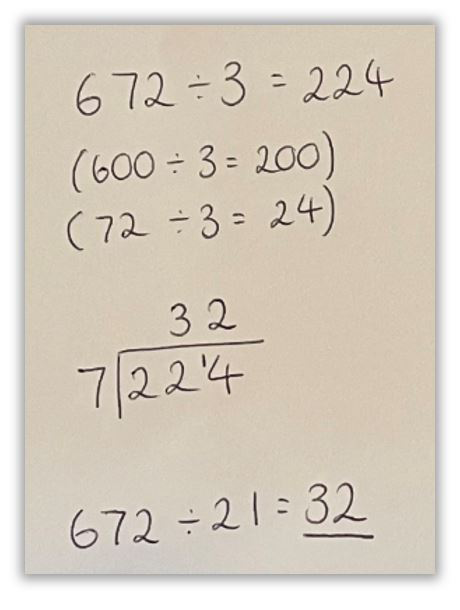 672 ÷ 3 = 224
(600 ÷ 3 = 200)
(72 ÷ 3 = 24)
32
7 22¹4
672 ÷ 21 = 32